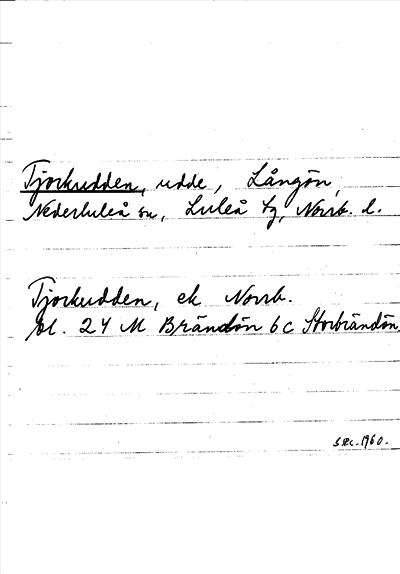 Tjorkudden, udde, Långön,
Nederluleå sn, Luleå tg, Norrb. l.
Tjorkudden, ek Norrb.
bl. 24 M Brändön 6c Storbrändön.
SRC. 1960.